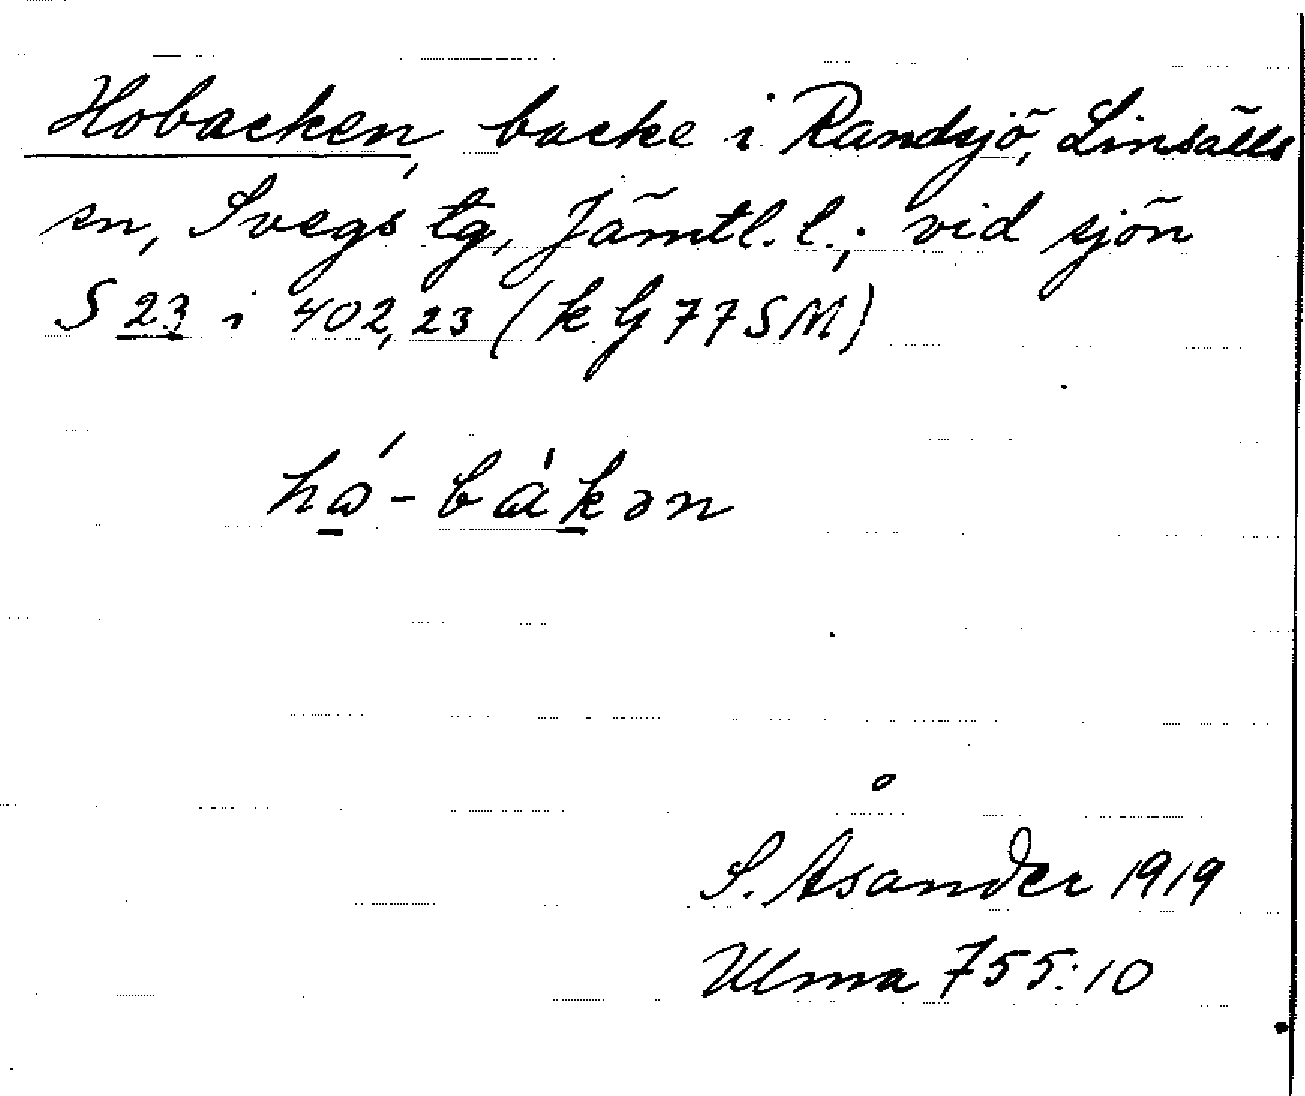 Hobacken, backe i Randsjö, Linsälls
sn, Svegs tg, Jämtl. l.; vid sjön
S 23 i 402,23 (k G 77 S M)
hó-bàkən
S. Åsander 1919
Ulma 755:10